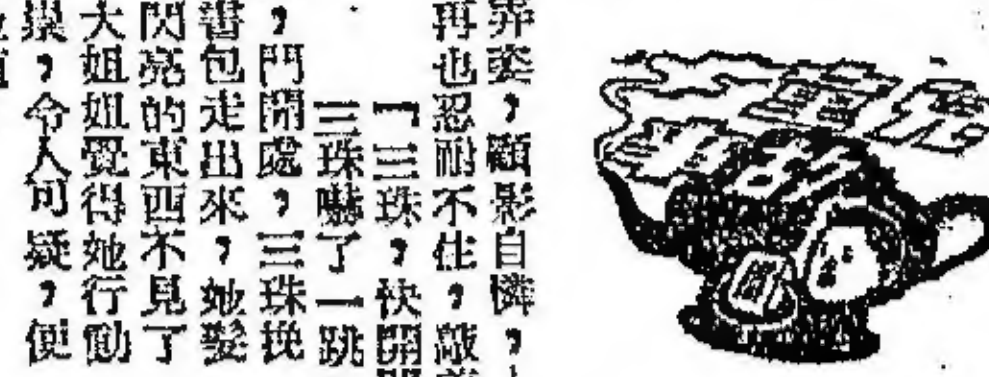 弄姿，顧影自憐，
再也忍耐不住，敲
「三珠，快開
三珠嚇了一跳
，門開處，三珠挽
書包走出來，她髮
閃亮的東西不見了
大姐姐覺得她行動
祟，令人可疑，便